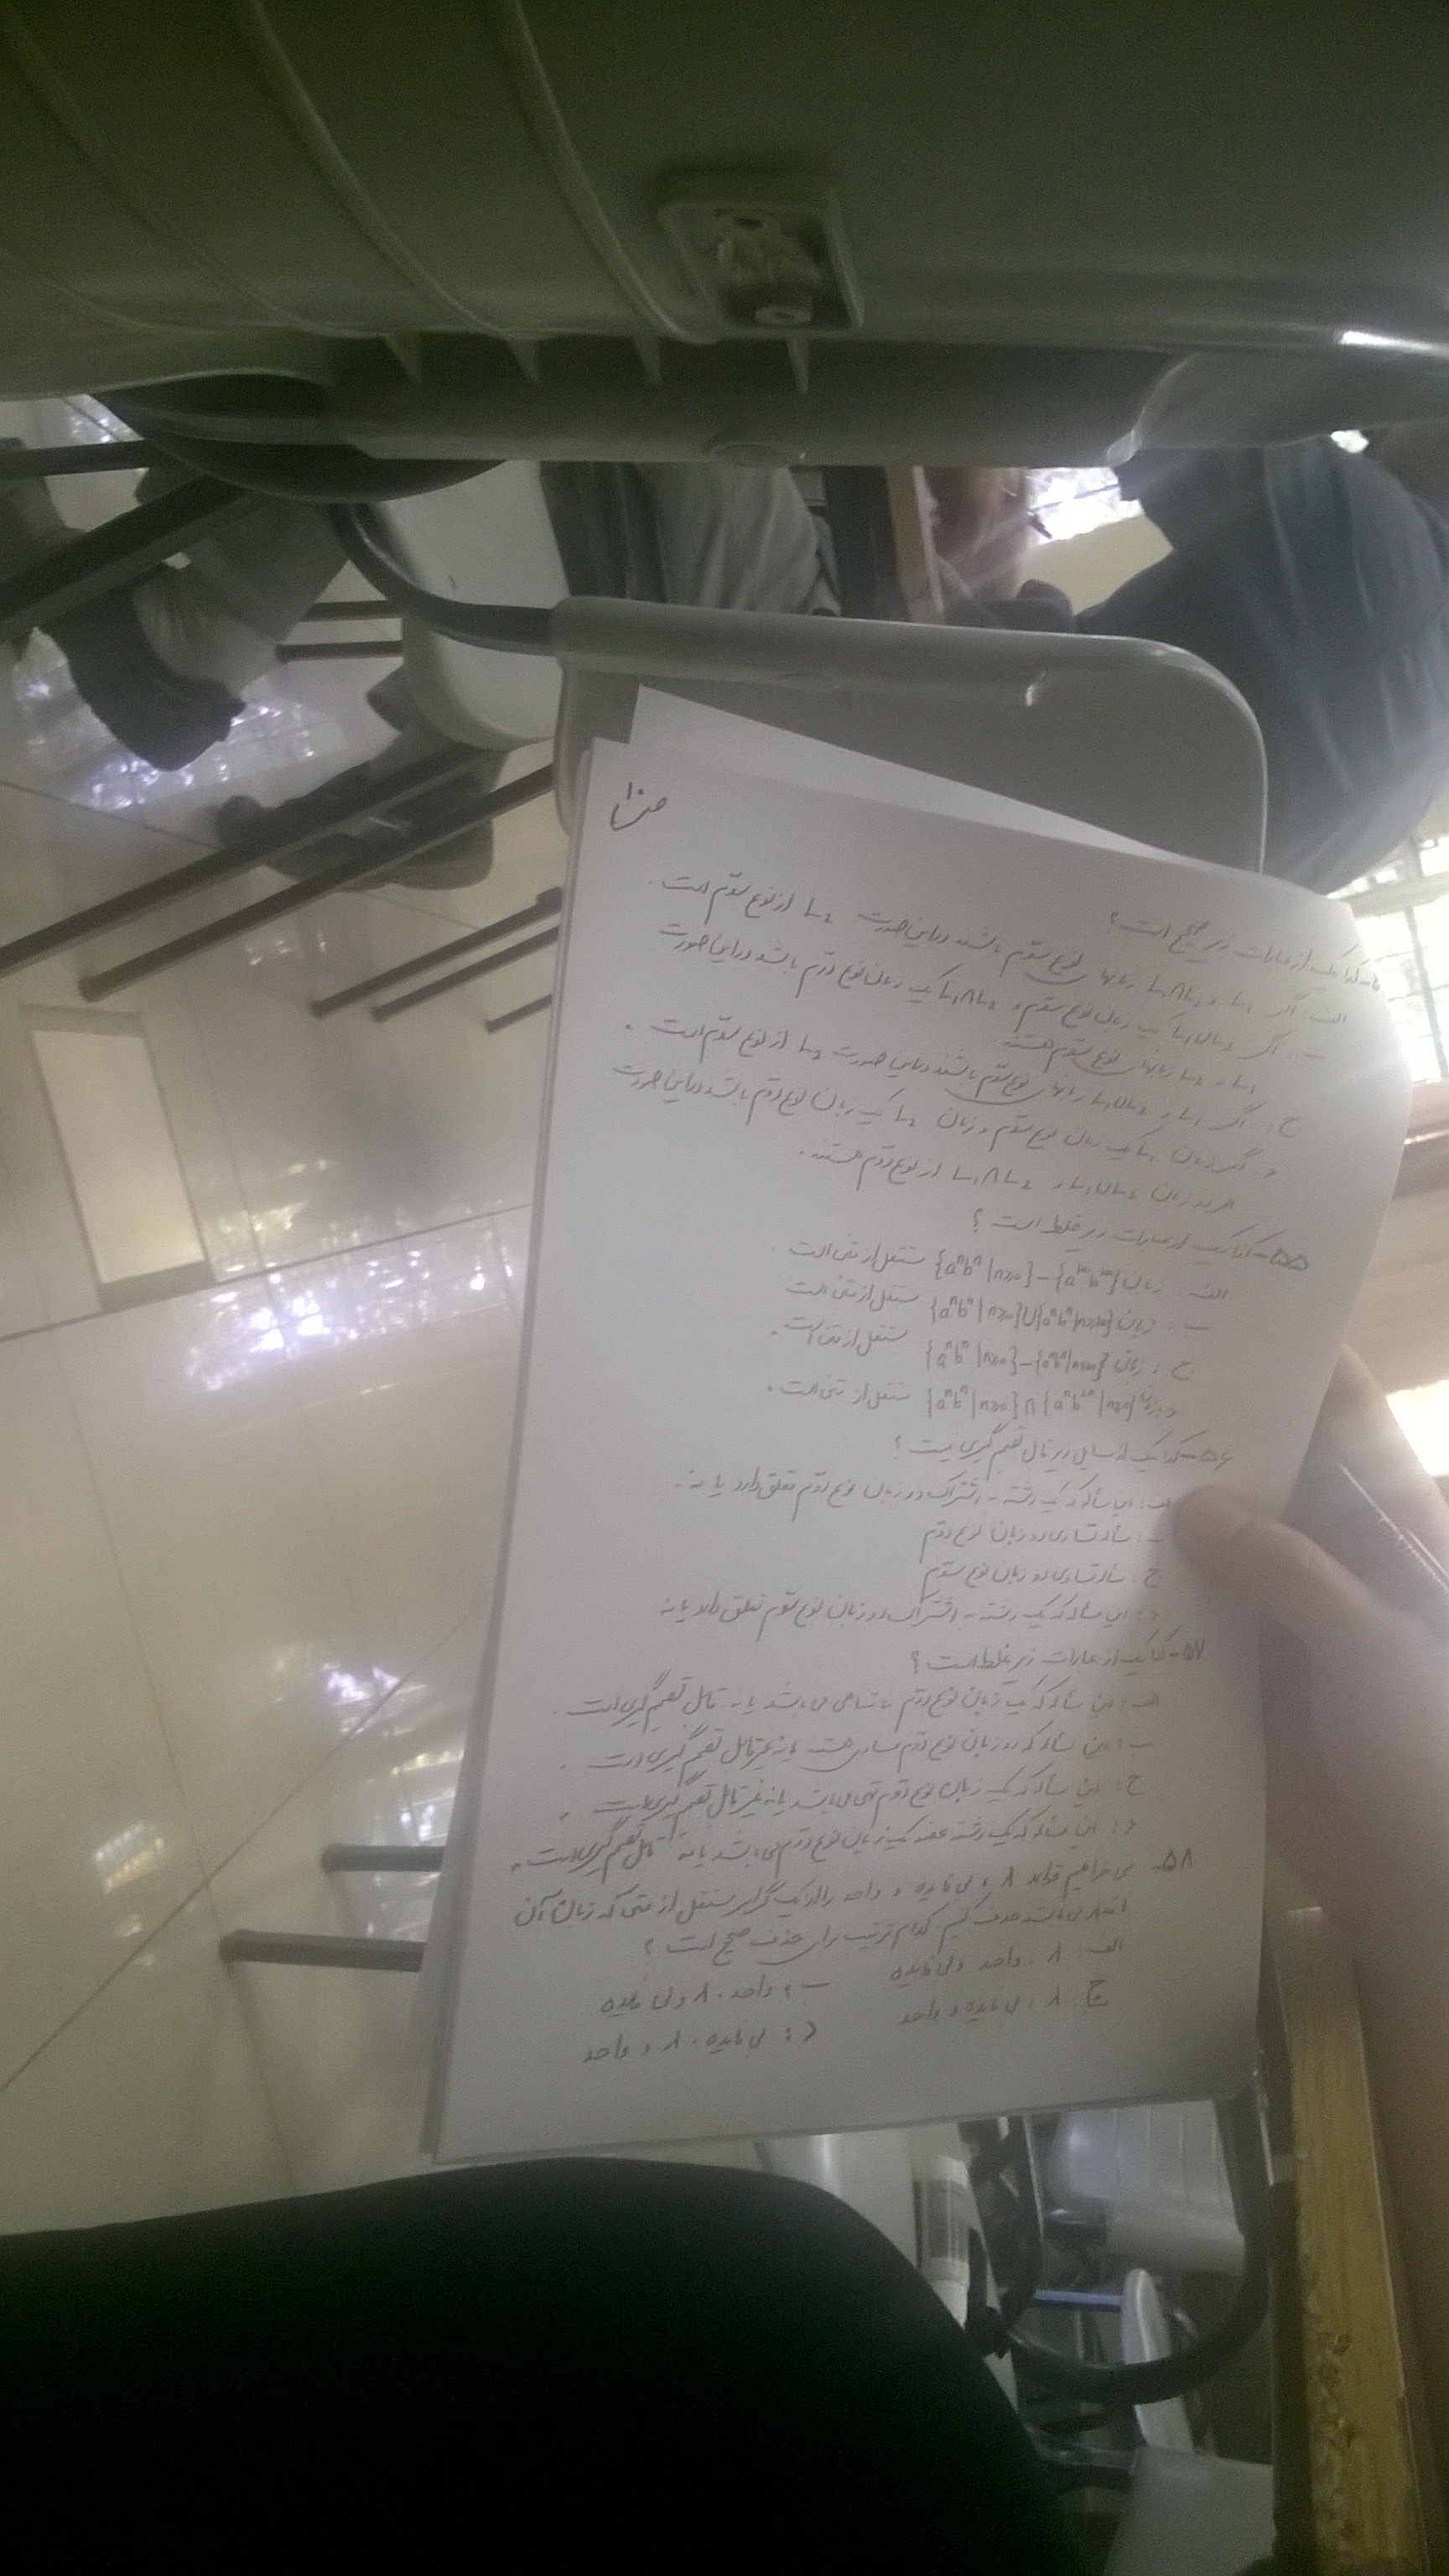 ص ۱۰
کدامیک از عبارات زیر صحیح است ؟
الف: اگر L₁ و L₁∩L₂ زبانها نوع سوم باشند در این صورت L₂ از نوع سوم است .
ب: اگر L₁∪L₂ یک زبان نوع سوم و L₁∩L₂ یک زبان نوع دوم باشد در این صورت
L₁ و L₂ زبانها نوع سوم هستند
ج: اگر L₁ و L₁∪L₂ زبانها نوع سوم باشند در این صورت L₂ از نوع سوم است .
د: اگر زبان L₁ یک زبان نوع سوم و زبان L₂ یک زبان نوع دوم باشد در این صورت
هر دو زبان L₁∪L₂ و L₁∩L₂ از نوع دوم هستند .
۵۵- کدامیک از عبارات زیر غلط است ؟
الف: زبان {aⁿbⁿ|n≥0}-{ مستقل از متن است .
ب: زبان {aⁿbⁿ|n≥0}∪{ مستقل از متن است
ج: زبان {aⁿbⁿ|n≥0}-{ مستقل از متن است .
د: زبان {aⁿbⁿ|n≥0}∩{aⁿb²ⁿ|n≥0} مستقل از متن است .
۵۶- کدامیک از مسایل زیر قابل تصمیم گیری نیست ؟
الف: این مسأله که یک رشته به اشتراک دو زبان نوع دوم تعلق دارد یا نه .
ب: مسأله تساوی دو زبان نوع دوم
ج: مسأله تساوی دو زبان نوع سوم
د: این مسأله که یک رشته به اشتراک دو زبان نوع سوم تعلق دارد یا نه
۵۷- کدامیک از عبارات زیر غلط است ؟
الف: این مسأله که یک زبان نوع دوم نامتناهی می باشد یا نه قابل تصمیم گیری است .
ب: این مسأله که دو زبان نوع دوم مساوی هستند یا نه غیر قابل تصمیم گیری است .
ج: این مسأله که یک زبان نوع دوم تهی می باشد یا نه غیر قابل تصمیم گیری است .
د: این مسأله که یک رشته عضو یک زبان نوع دوم می باشد یا نه قابل تصمیم گیری است .
۵۸- می خواهیم قواعد λ ، بی فایده و واحد را از یک گرامر مستقل از متن که زبان آن
می باشد حذف کنیم. کدام ترتیب برای حذف صحیح است ؟
الف: λ ، واحد و بی فایده
ب: واحد ، λ و بی فایده
ج: λ ، بی فایده و واحد
د: بی فایده ، λ و واحد